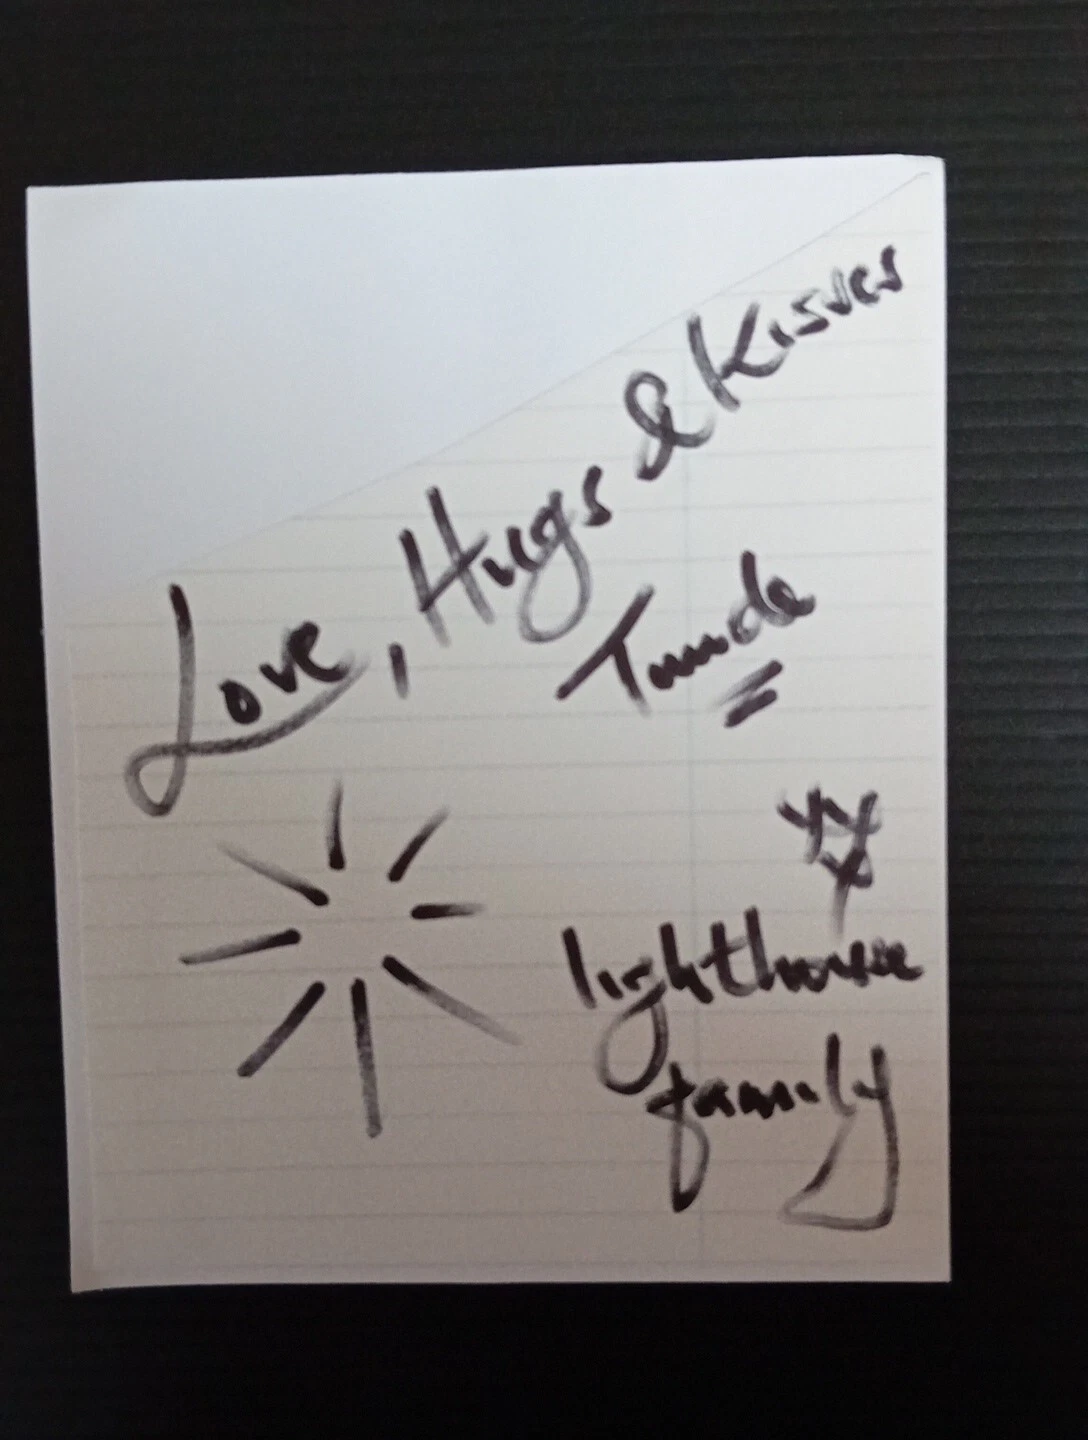 Love, Hugs & Kisses
Tunde
xx
x
lighthouse
family